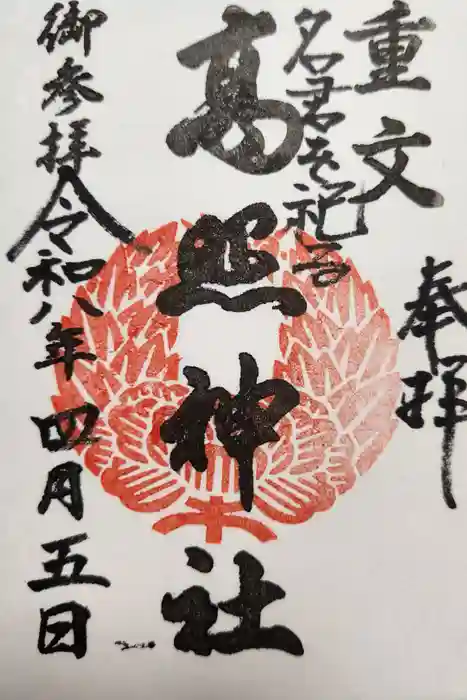 奉拝
重文
名君を祀る
高照神社
御参拝
令和八年四月五日